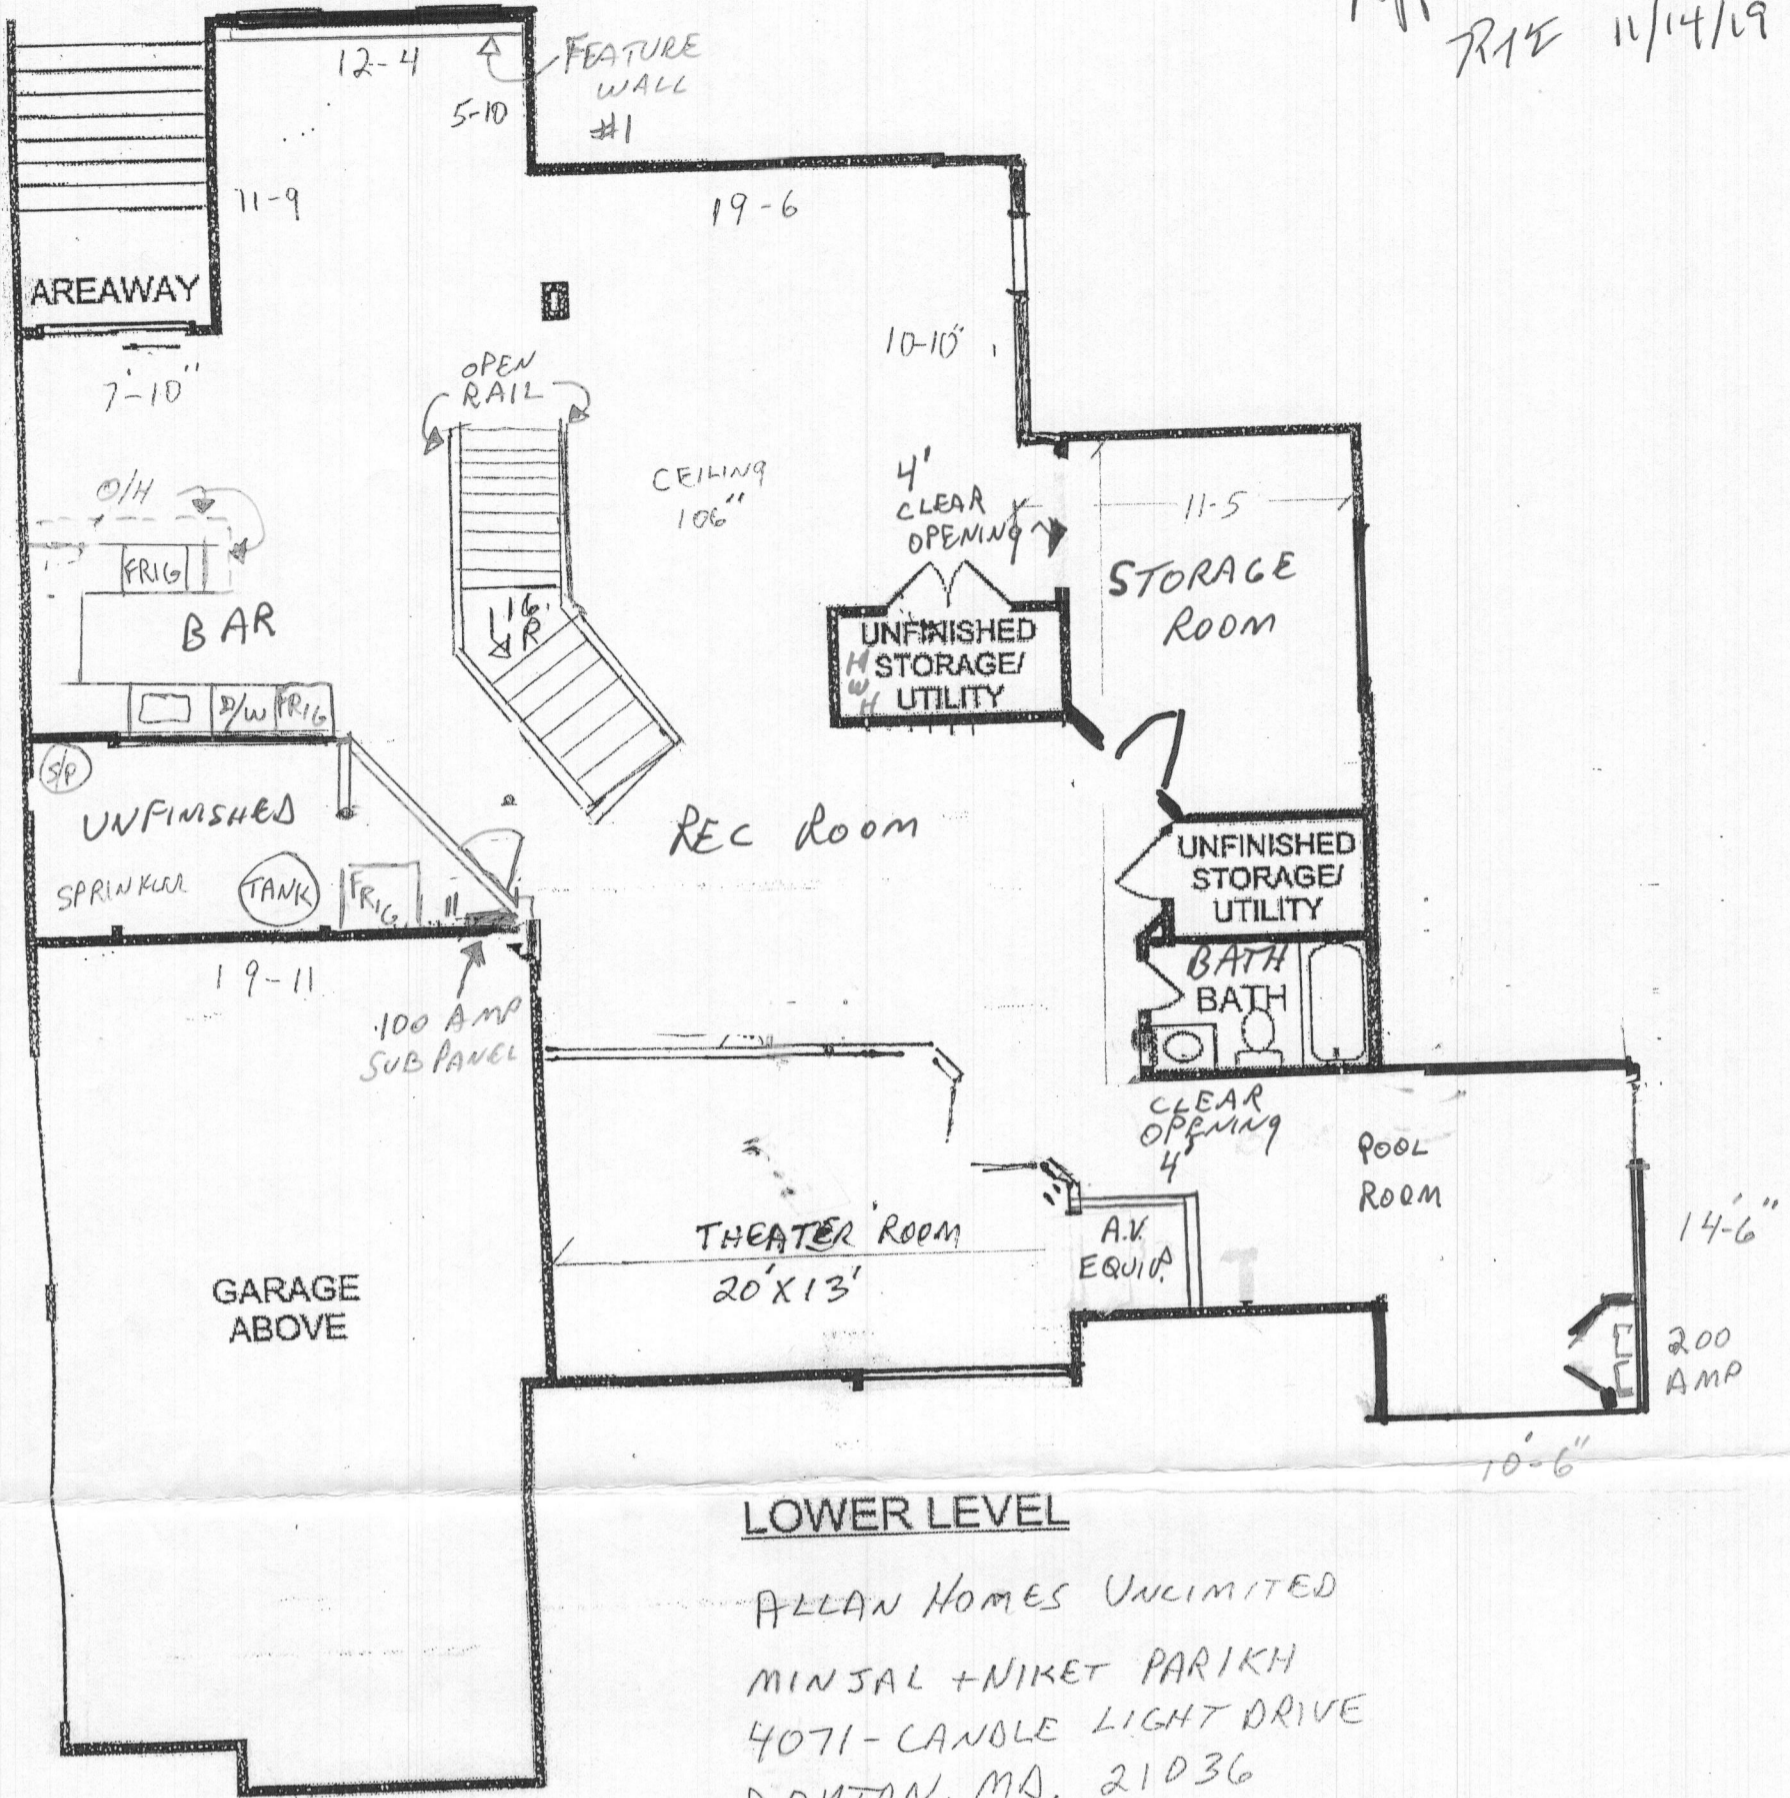 11/14/19
12-4
FEATURE
WALL
#1
5-10
11-9
19-6
AREAWAY
7'-10"
10-10"
OPEN
RAIL
CEILING
106"
4'
CLEAR
OPENING
11-5
O/H
FRIG
BAR
STORAGE
ROOM
16
R
UNFINISHED
STORAGE/
UTILITY
H
W
H
D/W FRIG
S/P
UNFINISHED
SPRINKLER
TANK
FRIG
REC ROOM
UNFINISHED
STORAGE/
UTILITY
BATH
BATH
19-11
100 AMP
SUB PANEL
CLEAR
OPENING
4'
POOL
ROOM
THEATER ROOM
20'X13'
A.V.
EQUIP.
14'-6"
GARAGE
ABOVE
200
AMP
10'-6"
LOWER LEVEL
ALLAN HOMES UNLIMITED
MINJAL + NIKET PARIKH
4071 - CANDLE LIGHT DRIVE
MD. 21036